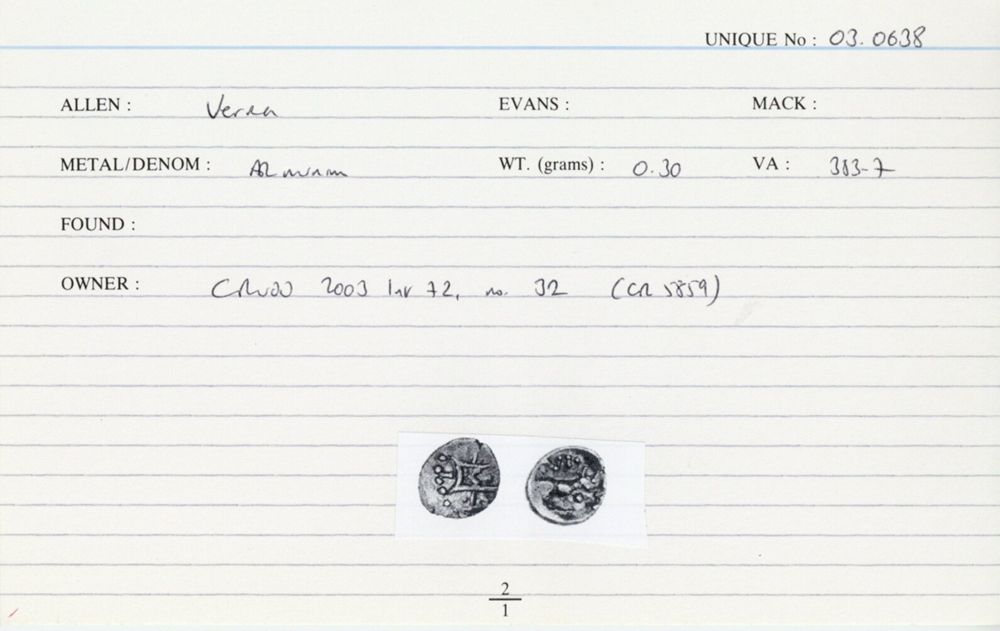 UNIQUE No : 03.0638
ALLEN : Verica EVANS : MACK :
METAL/DENOM : AR minim WT. (grams) : 0.30 VA : 383-7
FOUND :
OWNER : 2003 no. 32 (CR 5859)
2
1